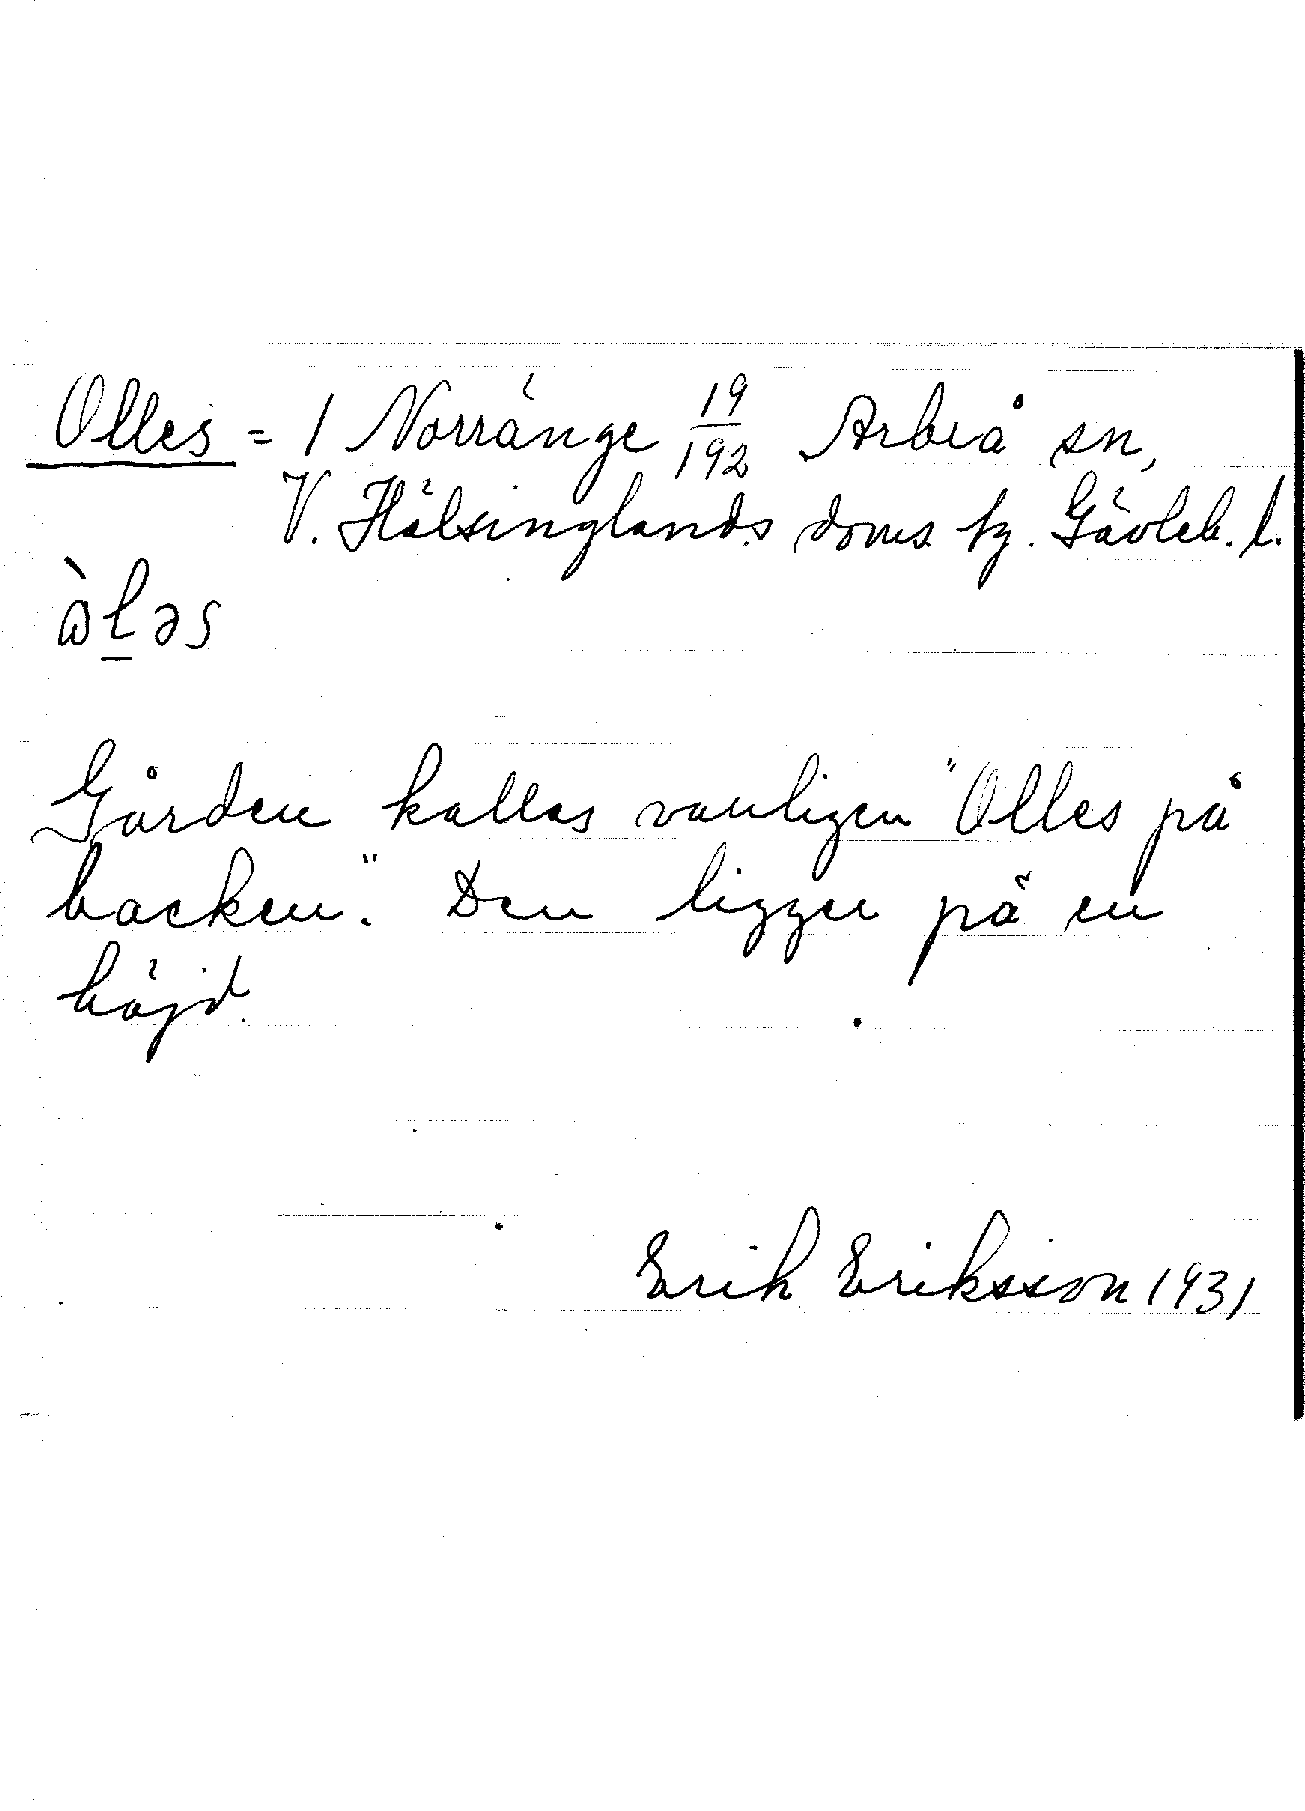 Olles = 1 Norränge 19/192 Arbrå sn,
V. Hälsinglands doms. hg. Gävleb. l.
ὼl̲əs
Gården kallas vanligen "Olles på
backen." Den ligger på en
höjd.
Erik Eriksson 1931